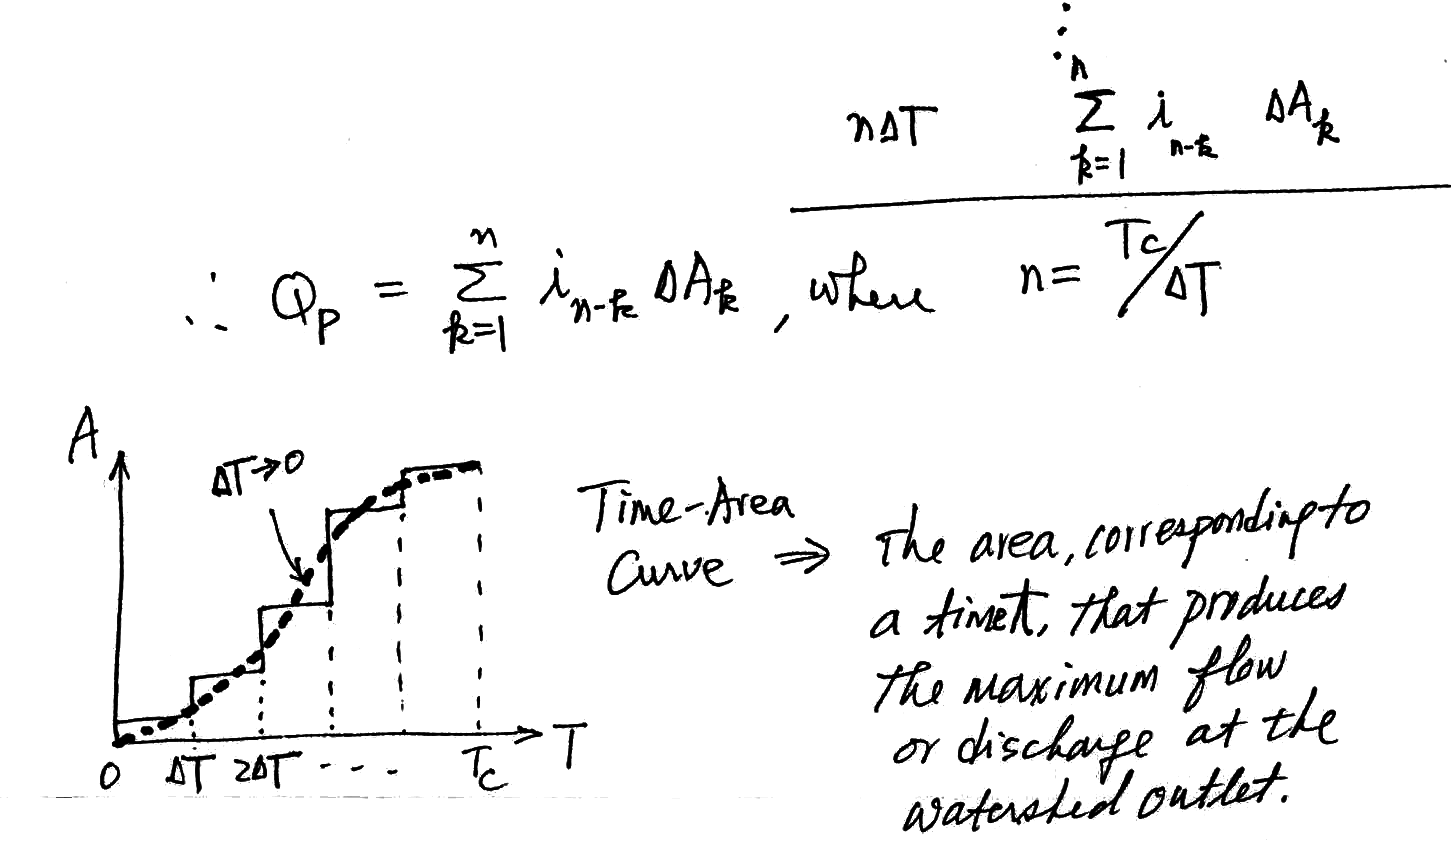 ⋮
nΔT    n Σ k=1 i n-k ΔA k
∴ Q p = n Σ k=1 i n-k ΔA k , where n = Tc/ΔT
A
ΔT→0
Time-Area
Curve ⇒
The area, corresponding to
a time t, that produces
the maximum flow
or discharge at the
watershed outlet.
0 ΔT 2ΔT - - - Tc T